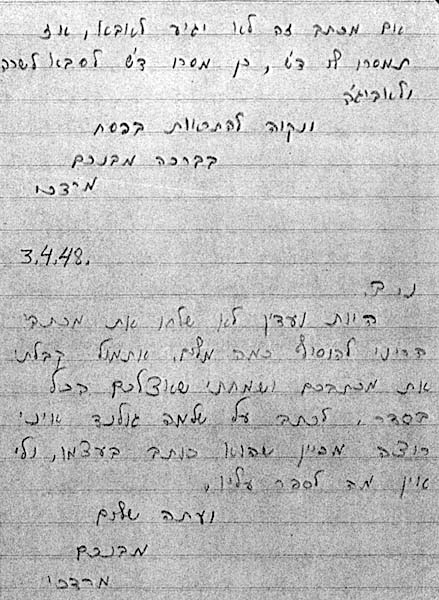 אם מכתב זה לא יגיע לאבא, אז
תמסרו לו ד"ש, כן מסרו ד"ש לסבא לשרה
ולאביג'ה
ונקוה להתראות בפסח
בברכה מבנכם
מרדכי
3.4.48.
נ.ב.
היות ועדין לא שלחו את מכתבי
הריני להוסיף כמה מלים. אתמול קבלתי
את מכתבכם ושמחתי שאצלכם הכל
בסדר. לכתב על שלמה גולנד איני
רוצה מכיון שהוא כותב בעצמו, ולי
אין מה לספר עליו.
ועתה שלום
מבנכם
מרדכי